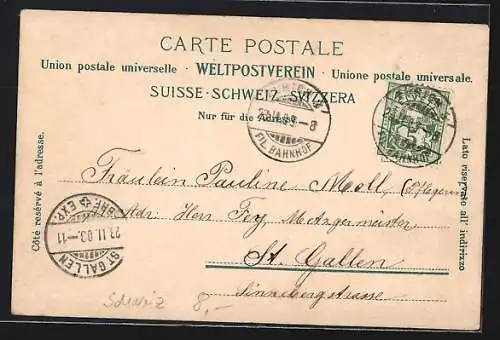 CARTE POSTALE
Union postale universelle · WELTPOSTVEREIN · Unione postale universale.
SUISSE · SCHWEIZ · SVIZZERA
Nur für die Adresse
FIL. BAHNHOF
BAHNHOF
Côté resérvé à l'adresse.
Lato reservato all' indirizzo
Fräulein Pauline Moll, (Pflegerin)
Adr: Herrn Fey, Metzgermeister
St. Gallen
BRF EXP.
22.II.03.-11
ST. GALLEN
Schweiz 8,-